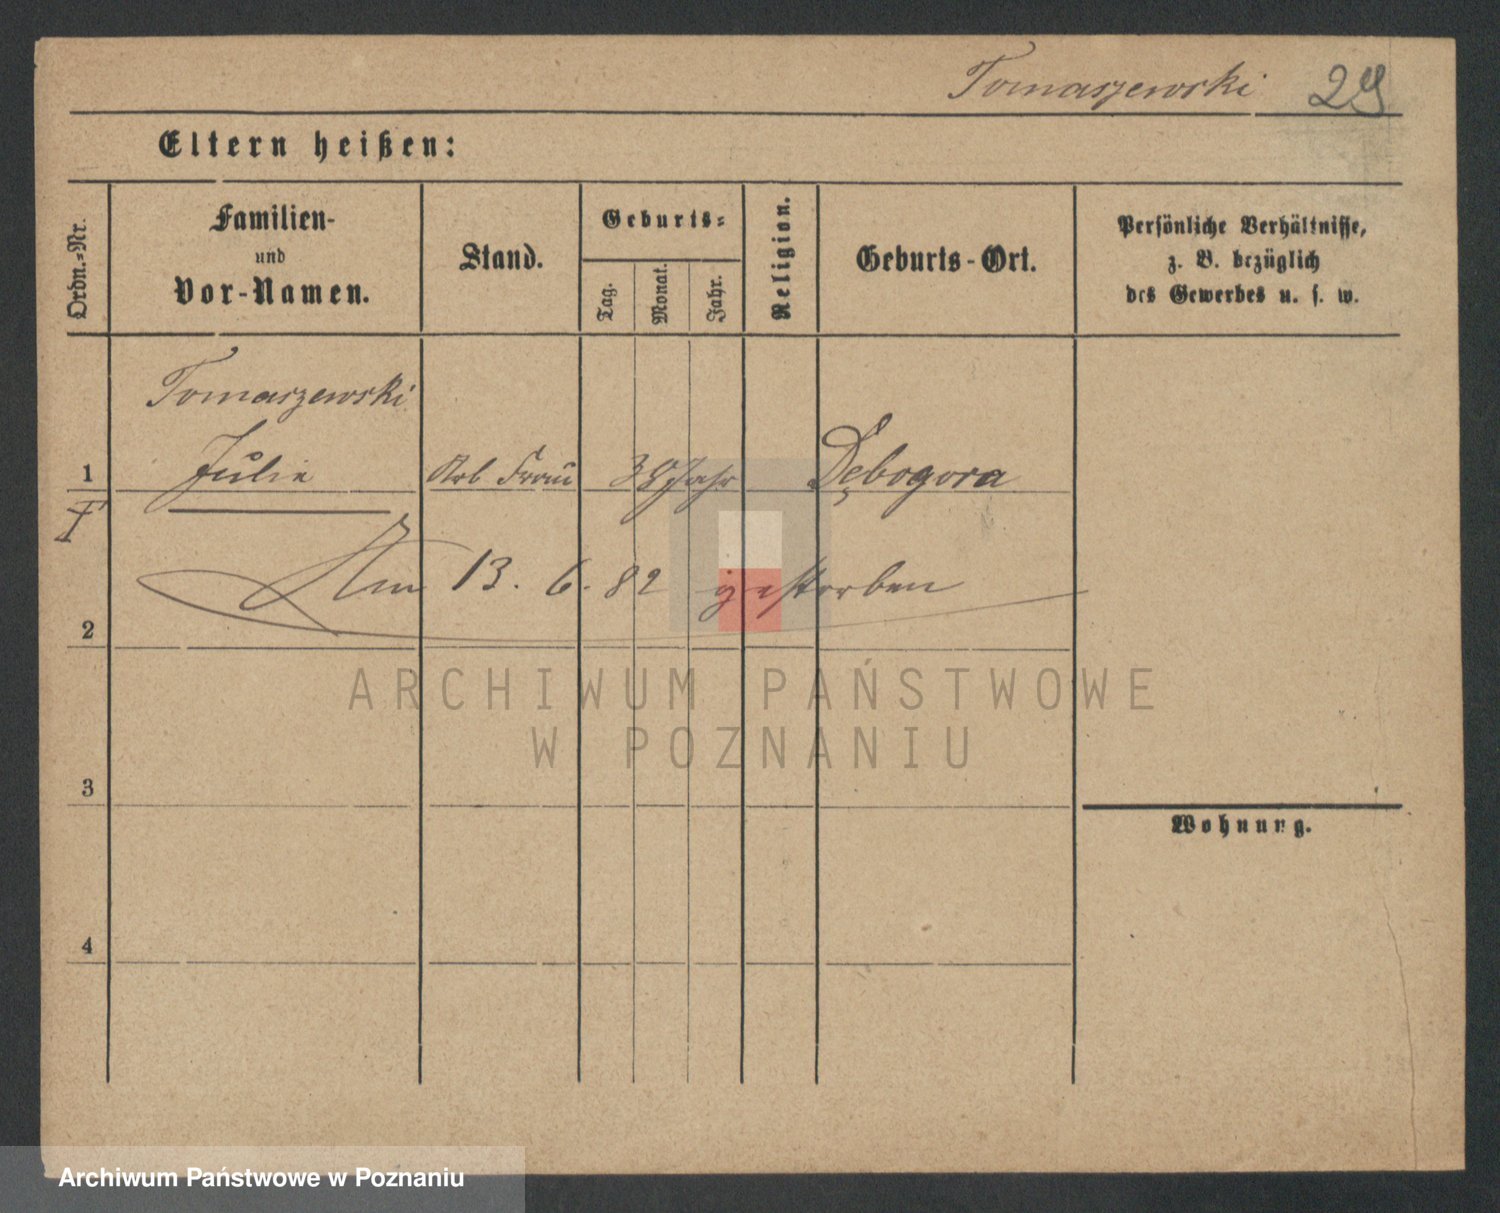 Tomaszewski 29
Eltern heißen:
Ordn.-Nr.
Familien-
und
Vor-Namen.
Stand.
Geburts-
Tag.
Monat.
Jahr.
Religion.
Geburts-Ort.
Persönliche Verhältnisse,
z. B. bezüglich
des Gewerbes u. s. w.
Tomaszewski
1 Julie Arb Frau 38 Jahr Dębogora
Am 13. 6. 82 gestorben
2
ARCHIWUM PAŃSTWOWE
W POZNANIU
3
Wohnung.
4
Archiwum Państwowe w Poznaniu